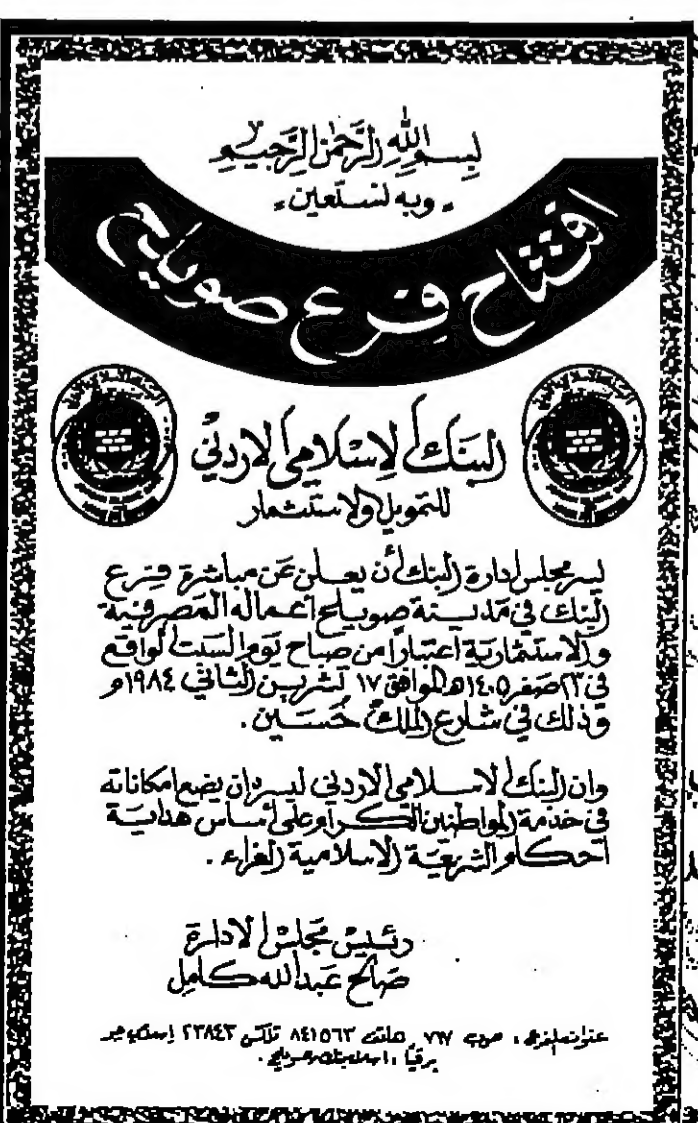 بسم الله الرحمن الرحيم
وبه نستعين
افتتاح فرع صويلح
البنك الإسلامي الاردني
للتمويل والاستثمار
يسر مجلس إدارة البنك أن يعلن عن مباشرة فرع
البنك في مدينة صويلح اعماله المصرفية
والاستثمارية اعتباراً من صباح يوم السبت الواقع
في ٢٣ صفر ١٤٠٥هـ الموافق ١٧ تشرين الثاني ١٩٨٤م
وذلك في شارع الملك حسين .
وان البنك الاسلامي الاردني ليسره ان يضع امكاناته
في خدمة المواطنين الكرام وعلى أساس هداية
أحكام الشريعة الاسلامية الغراء .
رئيس مجلس الادارة
صالح عبدالله كامل
عنوان الفرع : ص.ب ٧٦٧ هاتف ٨٤١٥٦٣ تلكس ٢٣٨٤٣
برقياً :